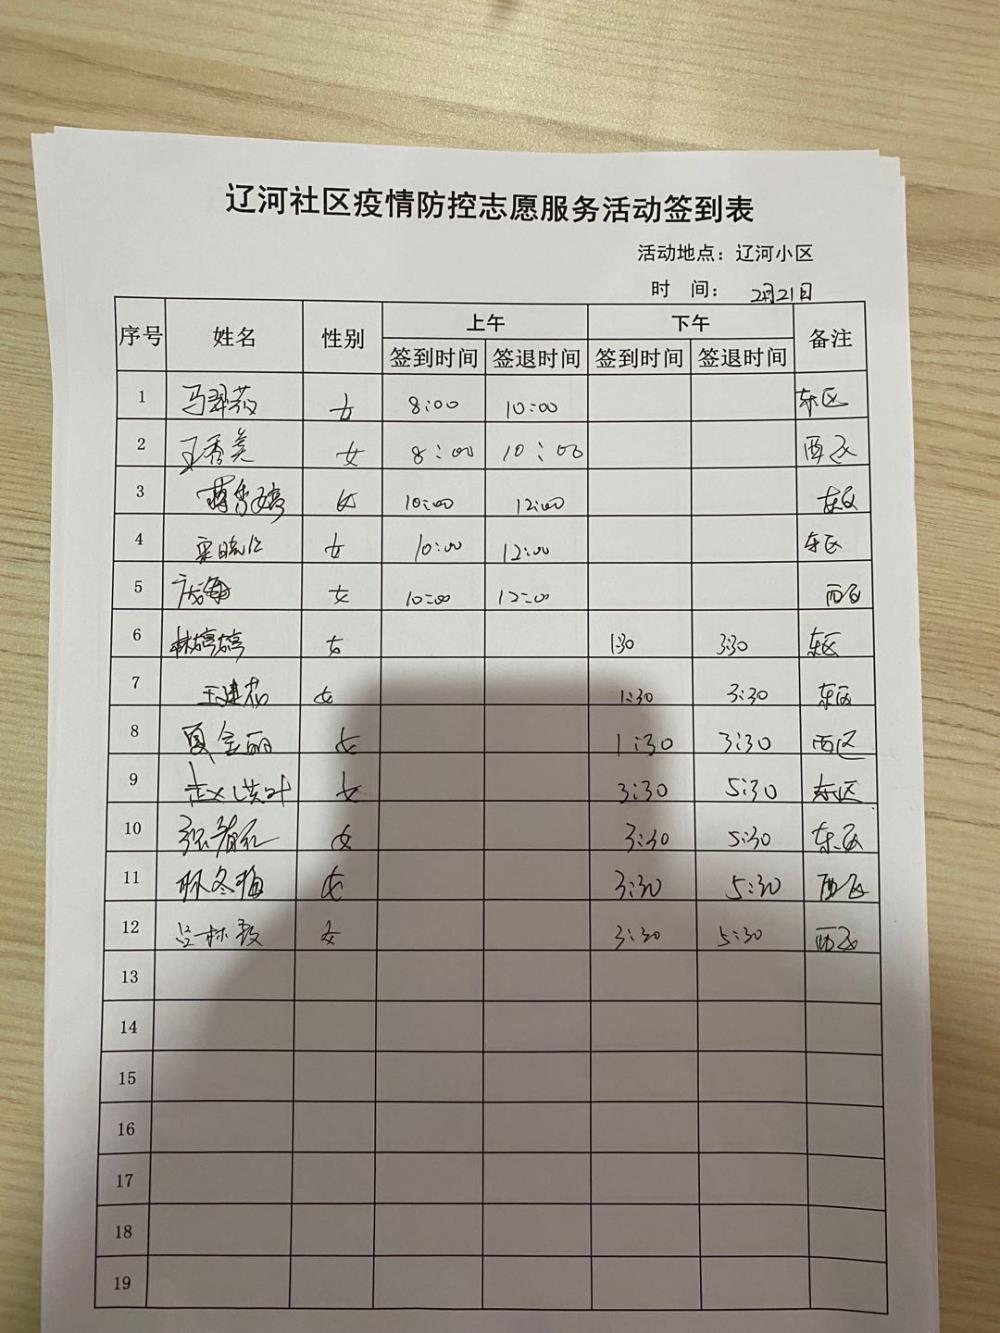 辽河社区疫情防控志愿服务活动签到表
活动地点：辽河小区
时 间： 2月21日
序号 姓名 性别 上午 下午 备注
签到时间 签退时间 签到时间 签退时间
1 马翠 女 8:00 10:00 东区
2 王秀美 女 8:00 10:00 西区
3 女 10:00 12:00 东区
4 女 10:00 12:00 东区
5 女 10:00 12:00 西区
6 林婷婷 女 1:30 3:30 东区
7 王建 女 1:30 3:30 东区
8 夏金丽 女 1:30 3:30 西区
9 赵洪叶 女 3:30 5:30 东区
10 张 女 3:30 5:30 东区
11 林冬梅 女 3:30 5:30 西区
12 林 女 3:30 5:30 西区
13
14
15
16
17
18
19